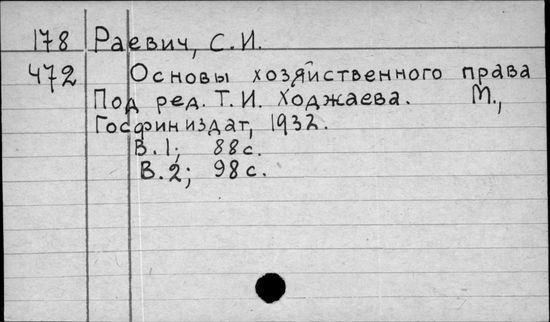 178 Раевич, С.И.
472 Основы хозяйственного права
Под ред. Т.И. Ходжаева. М.,
Госфиниздат, 1932.
В.1; 88с.
В.2; 98с.